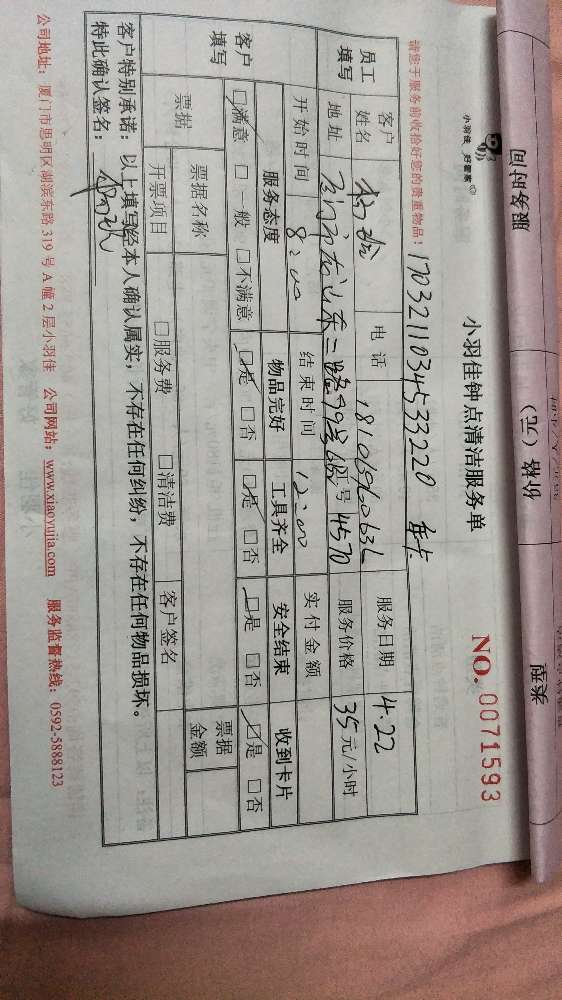 服务时间
价格（元）
小羽佳 好管家
小羽佳钟点清洁服务单
NO. 0071593
请您于服务前收拾好您的贵重物品！
17032110345533220
员工填写
客户姓名
电话
服务日期 4.22
地址
工号 4570
服务价格 35元/小时
开始时间 8:00
结束时间 12:00
实付金额
客户填写
服务态度 物品完好 工具齐全 安全结束 收到卡片
□满意 □一般 □不满意 □是 □否 □是 □否 □是 □否 □是 □否
票据
票据名称
票据金额
开票项目 □服务费 □清洁费
客户签名
客户特别承诺：以上填写经本人确认属实，不存在任何纠纷，不存在任何物品损坏。
特此确认签名：
公司地址：厦门市思明区湖滨东路 319 号 A 幢 2 层小羽佳 公司网站：www.xiaoyujia.com 服务监督热线：0592-5888123